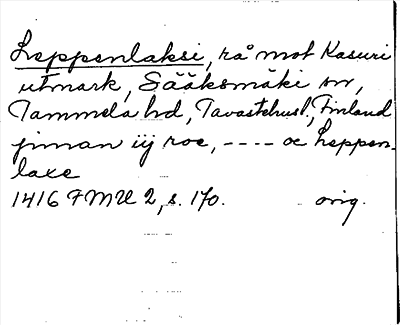 Leppenlaksi, rå mot Kasuri
utmark, Sääksmäki sn,
Tammela hd, Tavastehusl., Finland
jinnan iij roe, ---- oc Leppen-
laxe
1416 FMU 2, s. 170. orig.